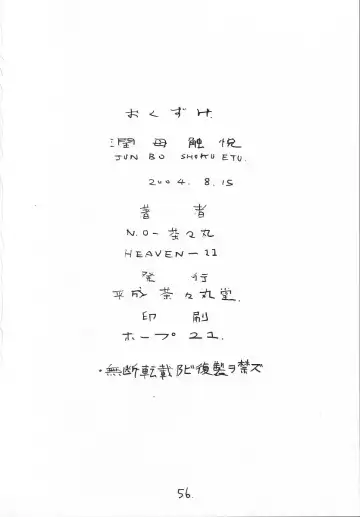 おくずけ
潤母触悦
JUN BO SHOKU ETU.
2004. 8. 15
著者
N.O-茶々丸
HEAVEN-11
発行
平成茶々丸堂.
印刷
ホープ21.
・無断転載及ビ復製ヲ禁ズ
56.